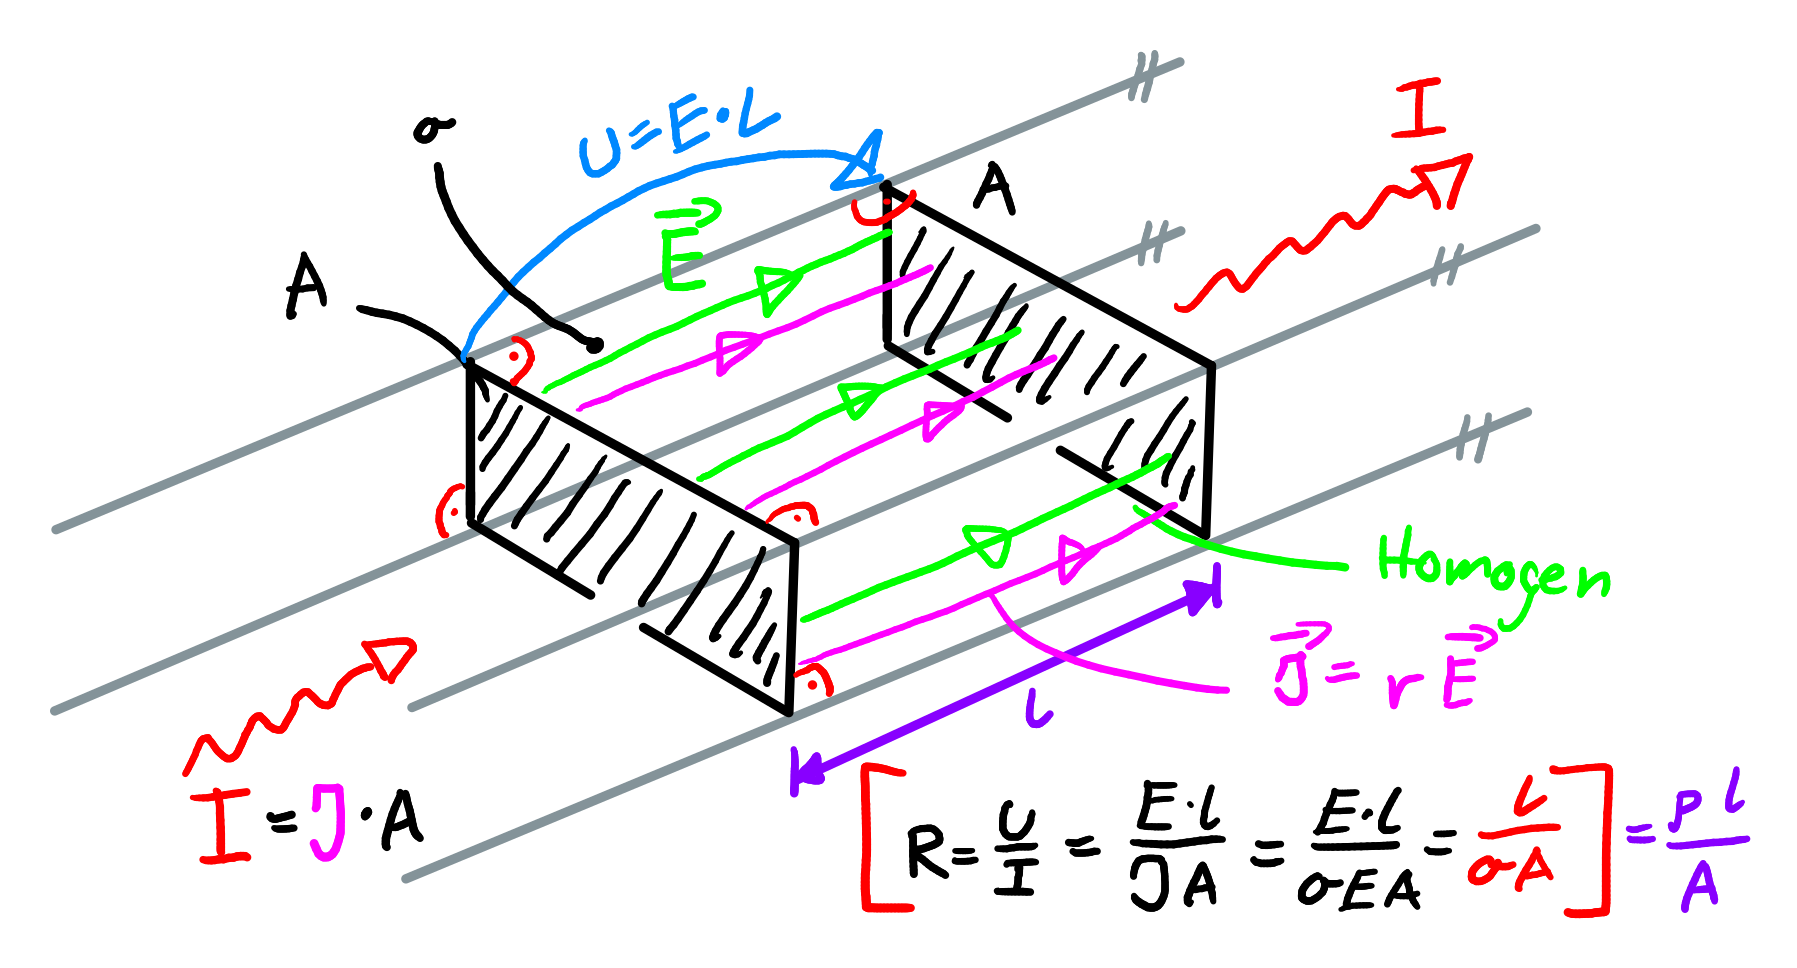 σ
U=E·l
I
A
E⃗
A
Homogen
J⃗ = r E⃗
l
I = J · A
[R = U/I = E·l/JA = E·l/σEA = l/σA] = ρl/A